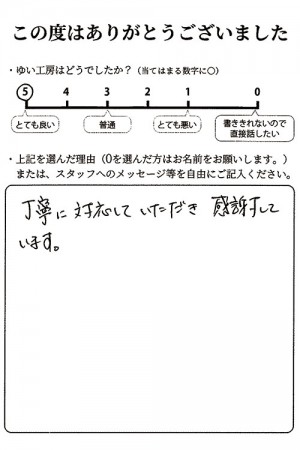 この度はありがとうございました
・ゆい工房はどうでしたか？（当てはまる数字に○）
5 4 3 2 1 0
とても良い 普通 とても悪い 書ききれないので直接話したい
・上記を選んだ理由（0を選んだ方はお名前をお願いします。）
または、スタッフへのメッセージ等を自由にご記入ください。
丁寧に対応していただき 感謝して
います。